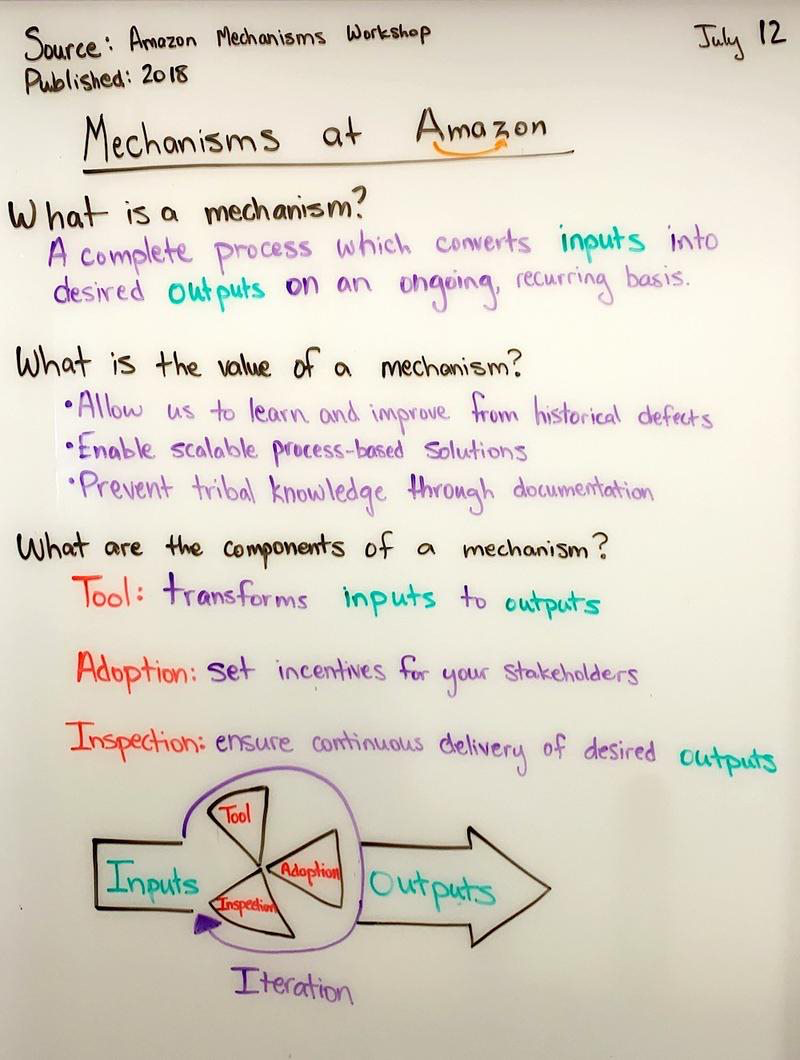 Source: Amazon Mechanisms Workshop
July 12
Published: 2018
Mechanisms at Amazon
What is a mechanism?
A complete process which converts inputs into
desired outputs on an ongoing, recurring basis.
What is the value of a mechanism?
•Allow us to learn and improve from historical defects
•Enable scalable process-based solutions
•Prevent tribal knowledge through documentation
What are the components of a mechanism?
Tool: transforms inputs to outputs
Adoption: set incentives for your stakeholders
Inspection: ensure continuous delivery of desired outputs
Tool
Inputs
Adoption
Outputs
Inspection
Iteration